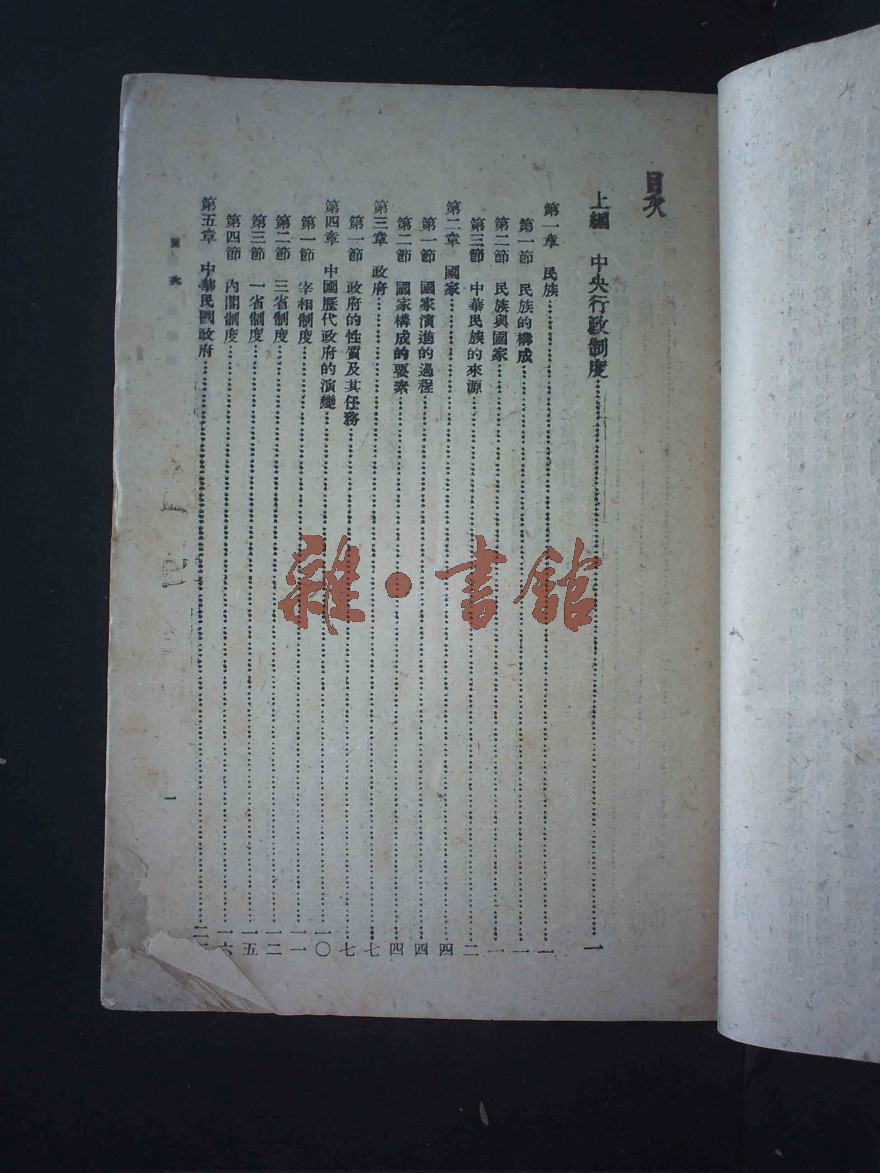 目次
上編　中央行政制度…………一
第一章　民族…………一
第一節　民族的構成…………一
第二節　民族與國家…………一
第三節　中華民族的來源…………二
第二章　國家…………四
第一節　國家演進的過程…………四
第二節　國家構成的要素…………四
第三章　政府…………七
第一節　政府的性質及其任務…………七
第四章　中國歷代政府的演變…………一〇
第一節　宰相制度…………一一
第二節　三省制度…………一二
第三節　一省制度…………一五
第四節　內閣制度…………一六
第五章　中華民國政府…………二
目次
一
雜·書館